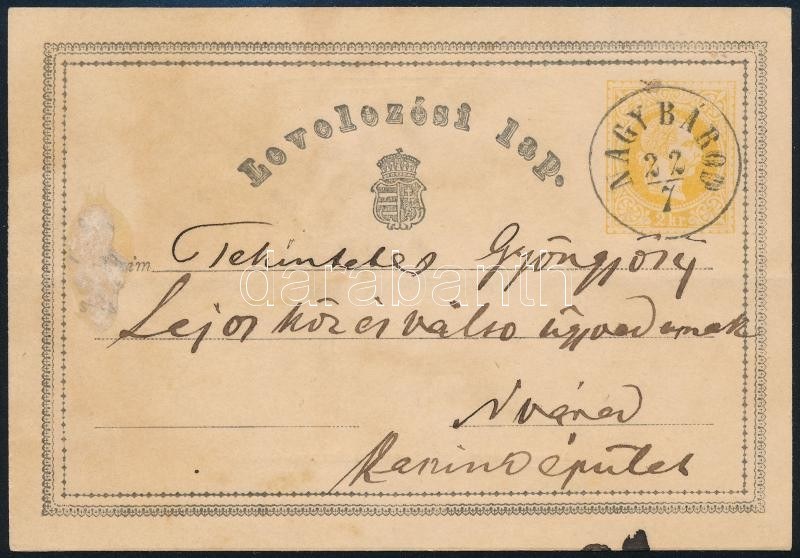 Levelezési lap.
NAGY BÁROD
22
7
2 kr.
Tekintetes Gyöngyösy
Lajos köz és váltó ügyved urnak
N várad
Kaszino épület
darabanth